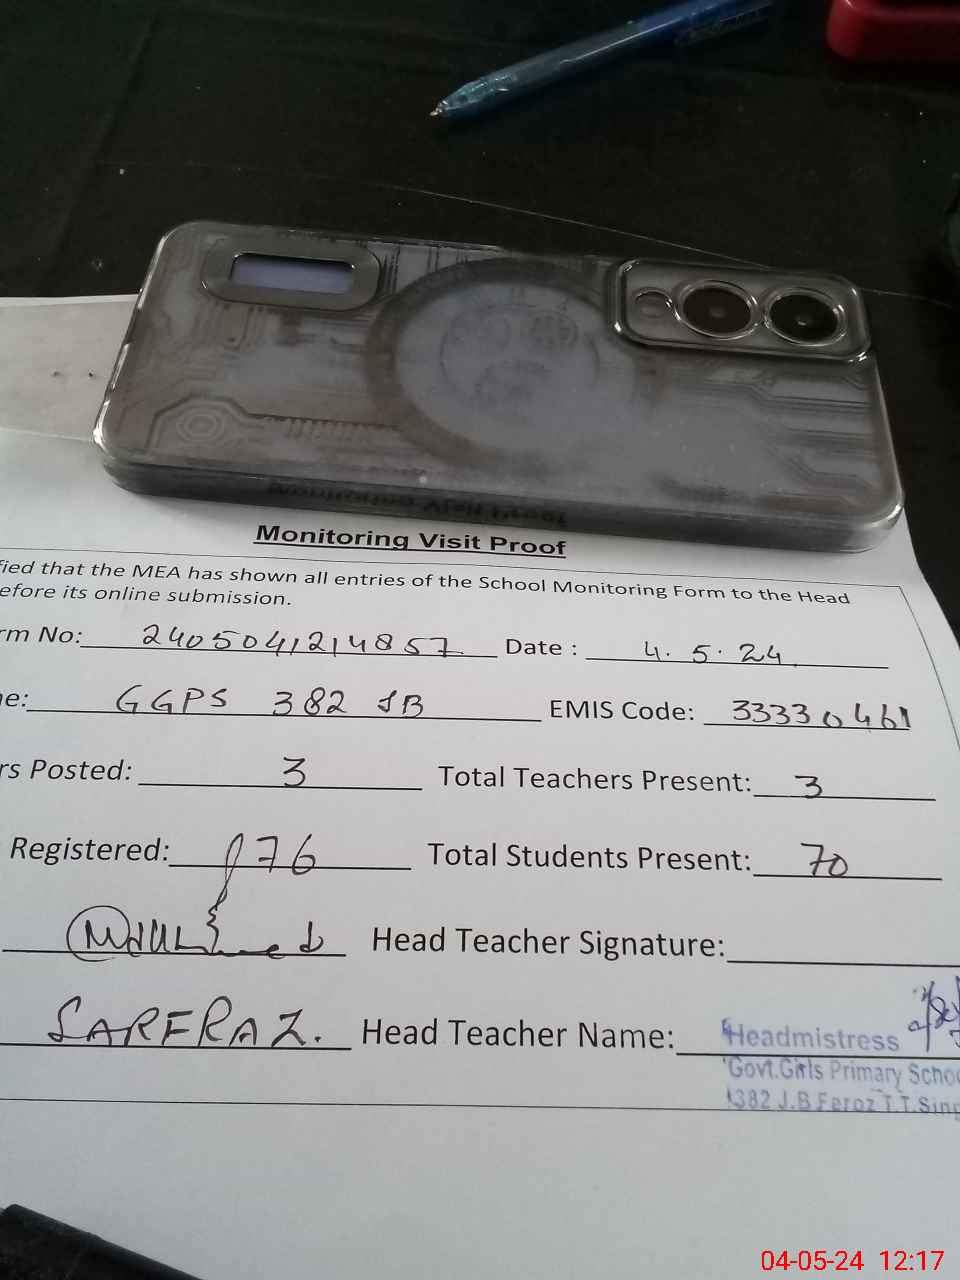 Monitoring Visit Proof
fied that the MEA has shown all entries of the School Monitoring Form to the Head
efore its online submission.
rm No: 2405041214857 Date : 4.5.24
e: GGPS 382 JB EMIS Code: 33330461
rs Posted: 3 Total Teachers Present: 3
Registered: 76 Total Students Present: 70
Head Teacher Signature:
SARFRAZ. Head Teacher Name: Headmistress
Govt.Girls Primary Schoo
382 J.B Feroz T.T.Sing
04-05-24 12:17